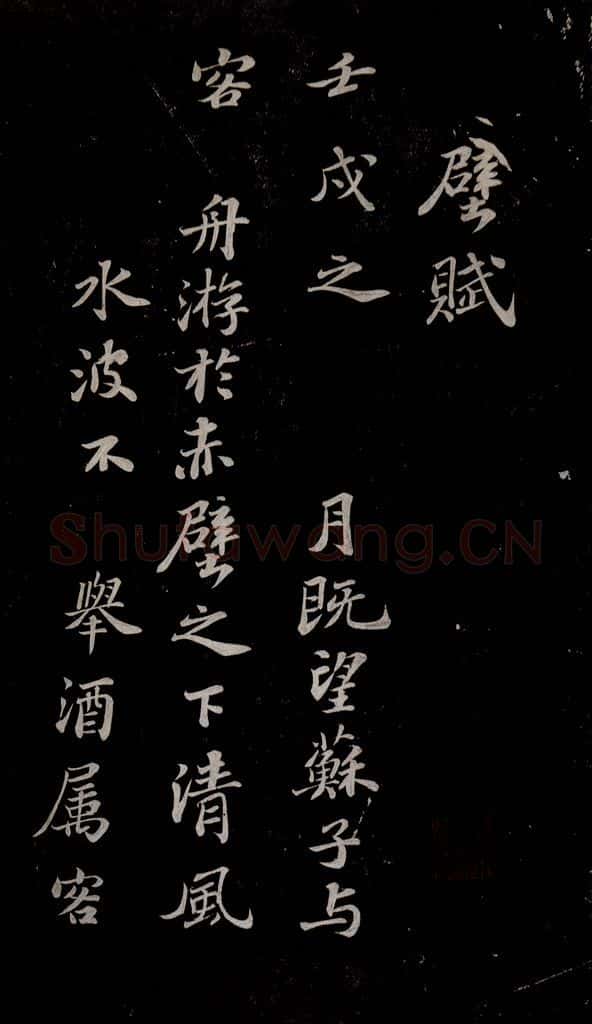 壁賦
壬戌之 月既望蘇子与
客 舟游於赤壁之下清風
水波不 舉酒属客
Shufawang.CN